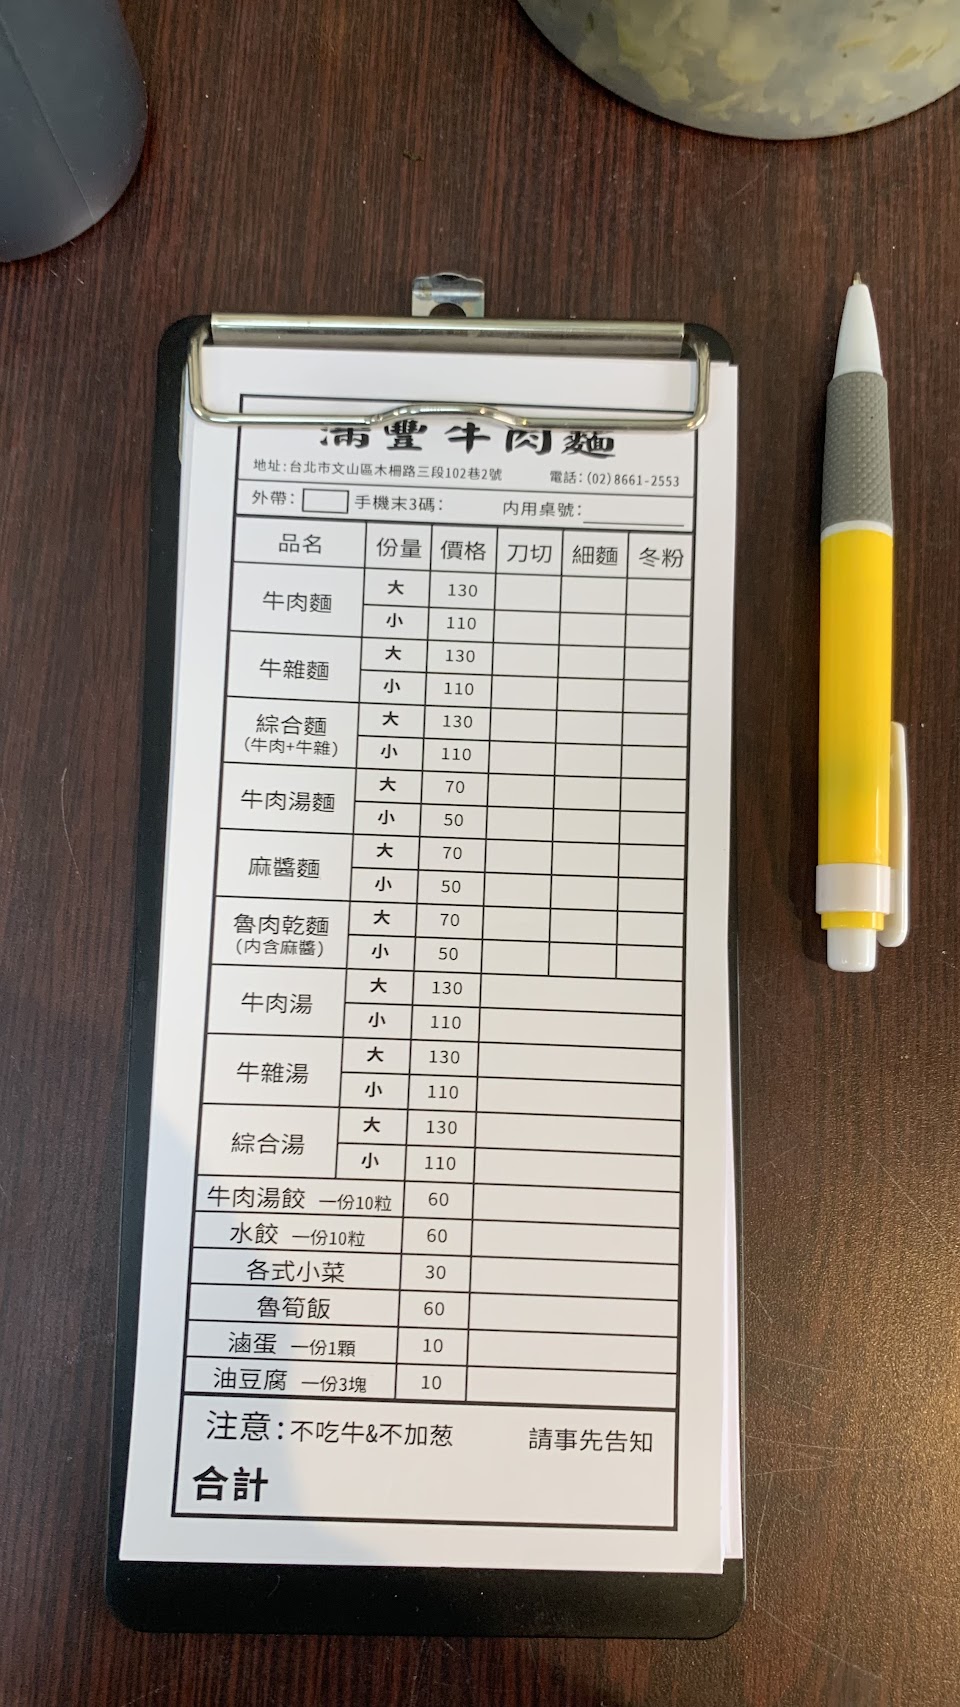 滿豐牛肉麵
地址:台北市文山區木柵路三段102巷2號 電話:(02)8661-2553
外帶: 手機末3碼: 內用桌號:
品名 份量 價格 刀切 細麵 冬粉
牛肉麵 大 130
小 110
牛雜麵 大 130
小 110
綜合麵 (牛肉+牛雜) 大 130
小 110
牛肉湯麵 大 70
小 50
麻醬麵 大 70
小 50
魯肉乾麵 (內含麻醬) 大 70
小 50
牛肉湯 大 130
小 110
牛雜湯 大 130
小 110
綜合湯 大 130
小 110
牛肉湯餃 一份10粒 60
水餃 一份10粒 60
各式小菜 30
魯筍飯 60
滷蛋 一份1顆 10
油豆腐 一份3塊 10
注意:不吃牛&不加葱 請事先告知
合計